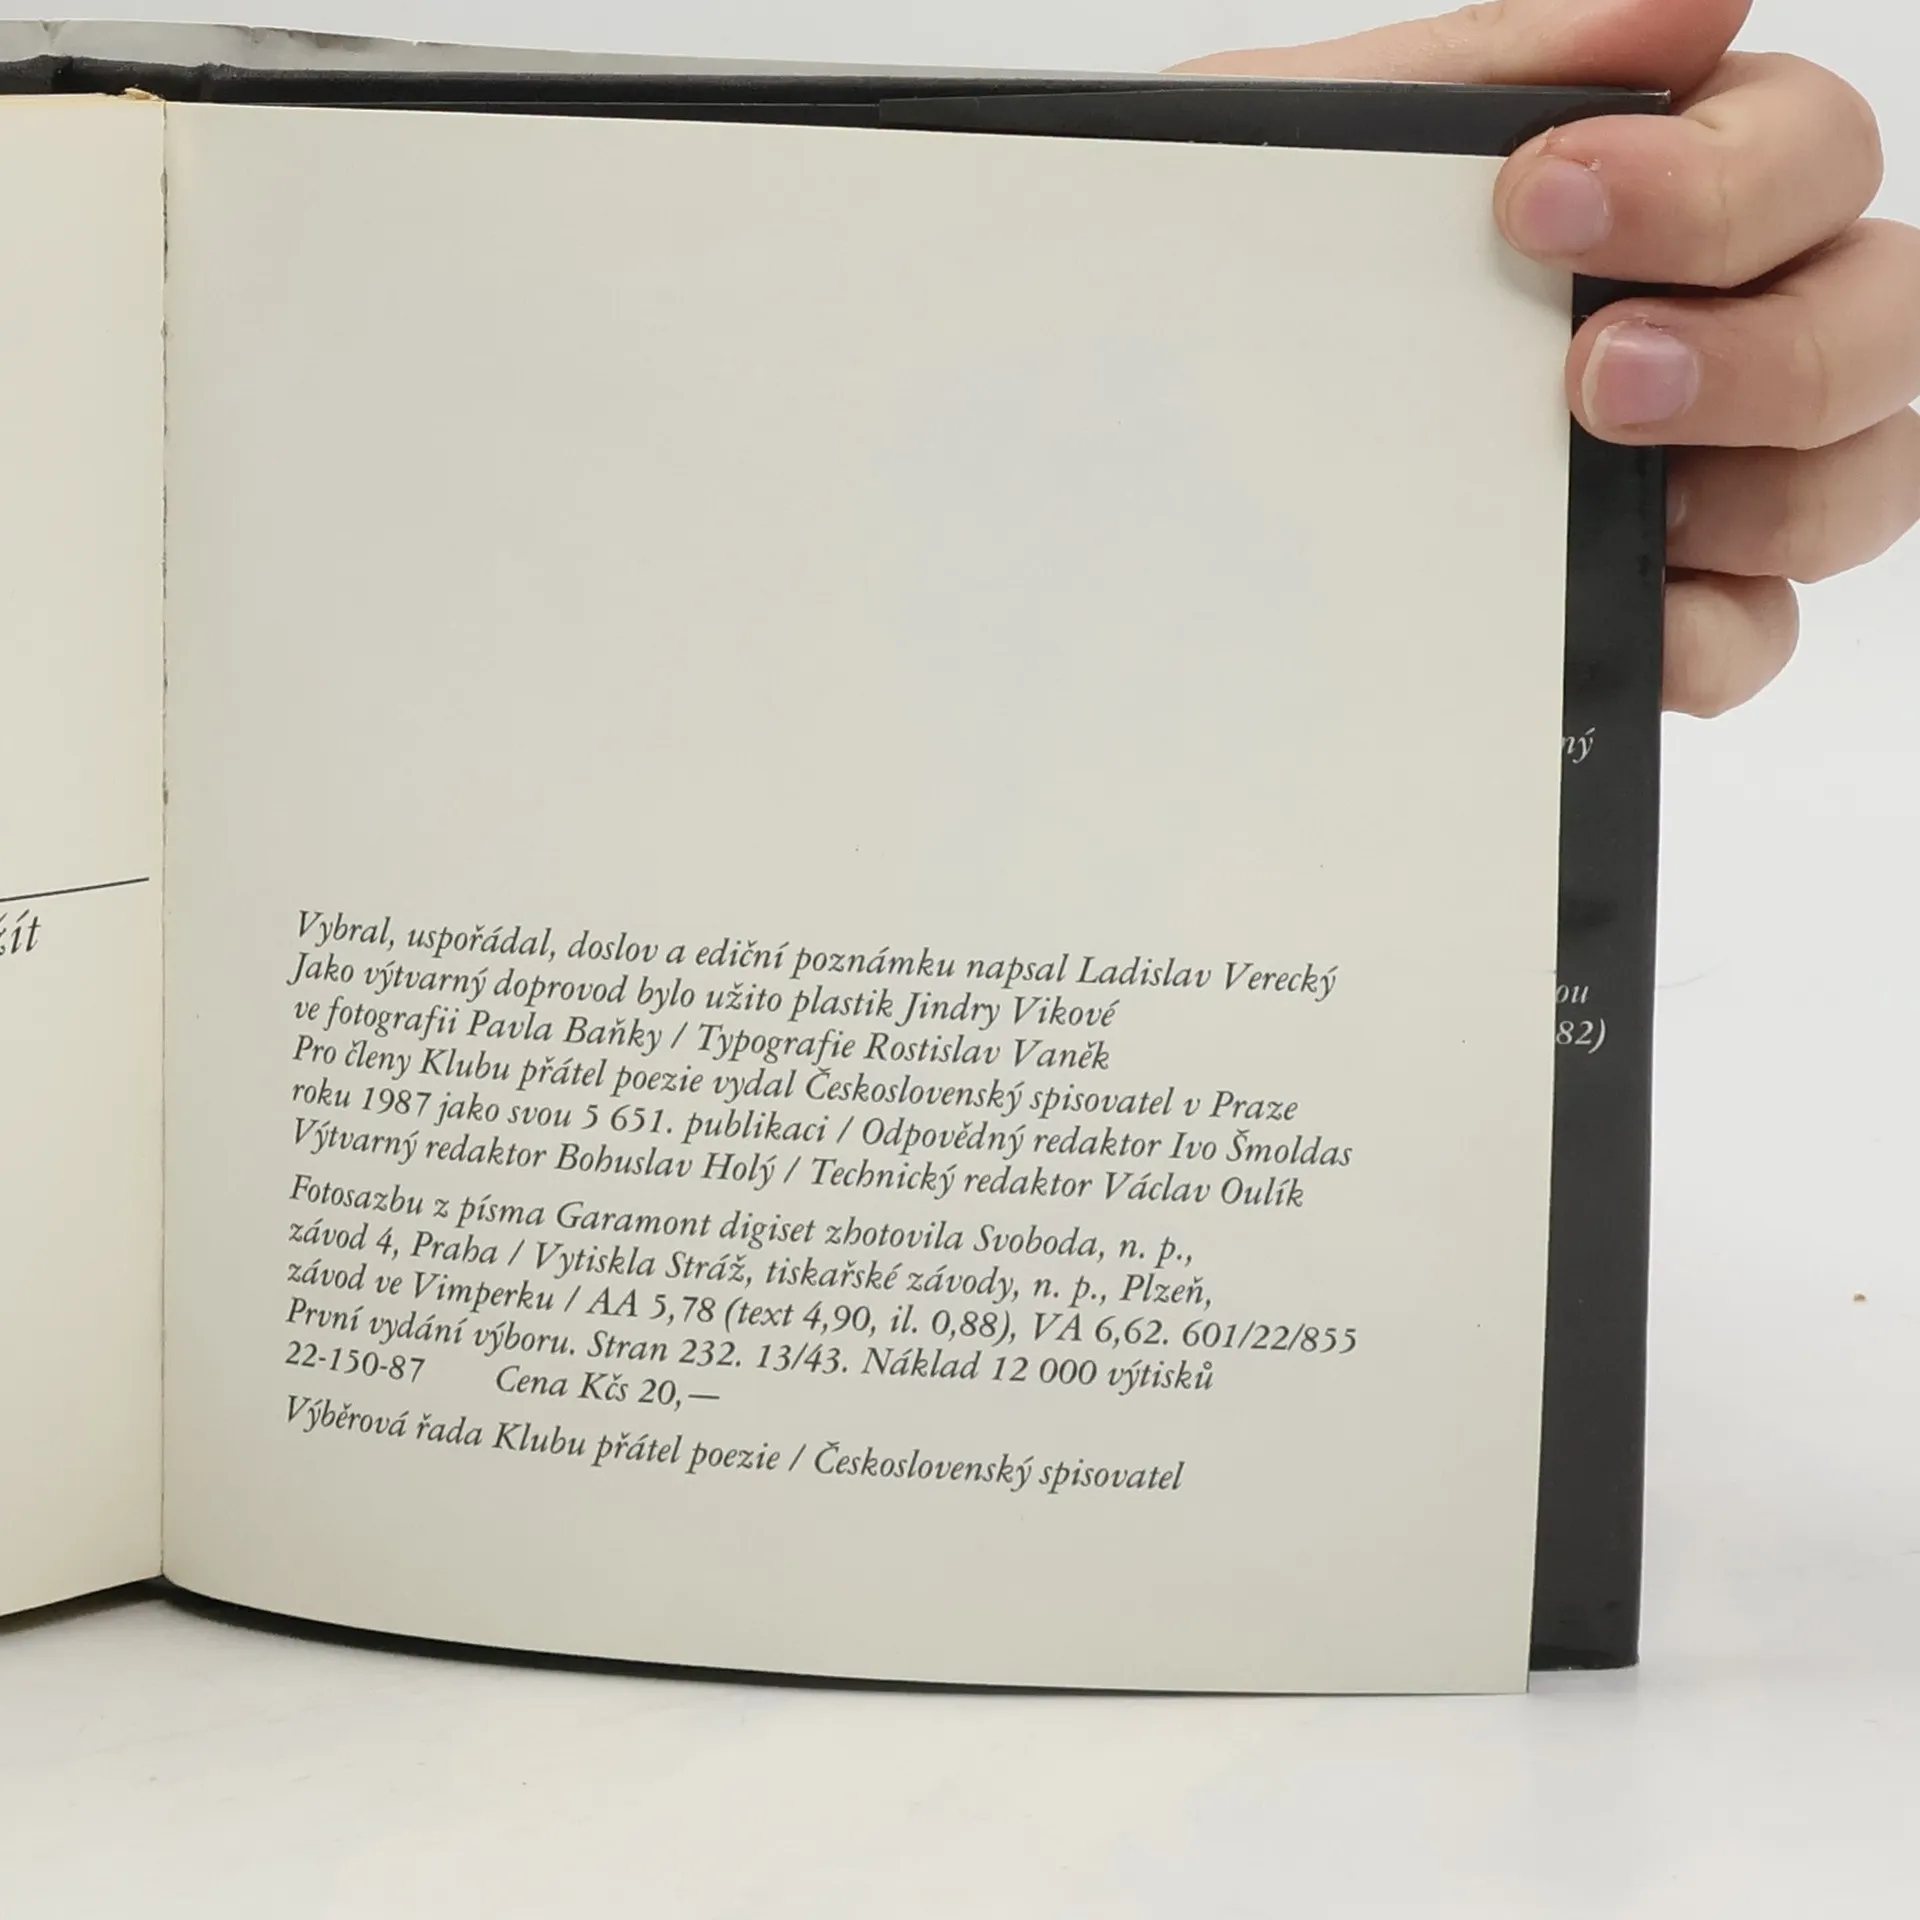 žít
Vybral, uspořádal, doslov a ediční poznámku napsal Ladislav Verecký
Jako výtvarný doprovod bylo užito plastik Jindry Vikové
ve fotografii Pavla Baňky / Typografie Rostislav Vaněk
Pro členy Klubu přátel poezie vydal Československý spisovatel v Praze
roku 1987 jako svou 5 651. publikaci / Odpovědný redaktor Ivo Šmoldas
Výtvarný redaktor Bohuslav Holý / Technický redaktor Václav Oulík
Fotosazbu z písma Garamont digiset zhotovila Svoboda, n. p.,
závod 4, Praha / Vytiskla Stráž, tiskařské závody, n. p., Plzeň,
závod ve Vimperku / AA 5,78 (text 4,90, il. 0,88), VA 6,62. 601/22/855
První vydání výboru. Stran 232. 13/43. Náklad 12 000 výtisků
22-150-87 Cena Kčs 20,—
Výběrová řada Klubu přátel poezie / Československý spisovatel
ný
ou
82)